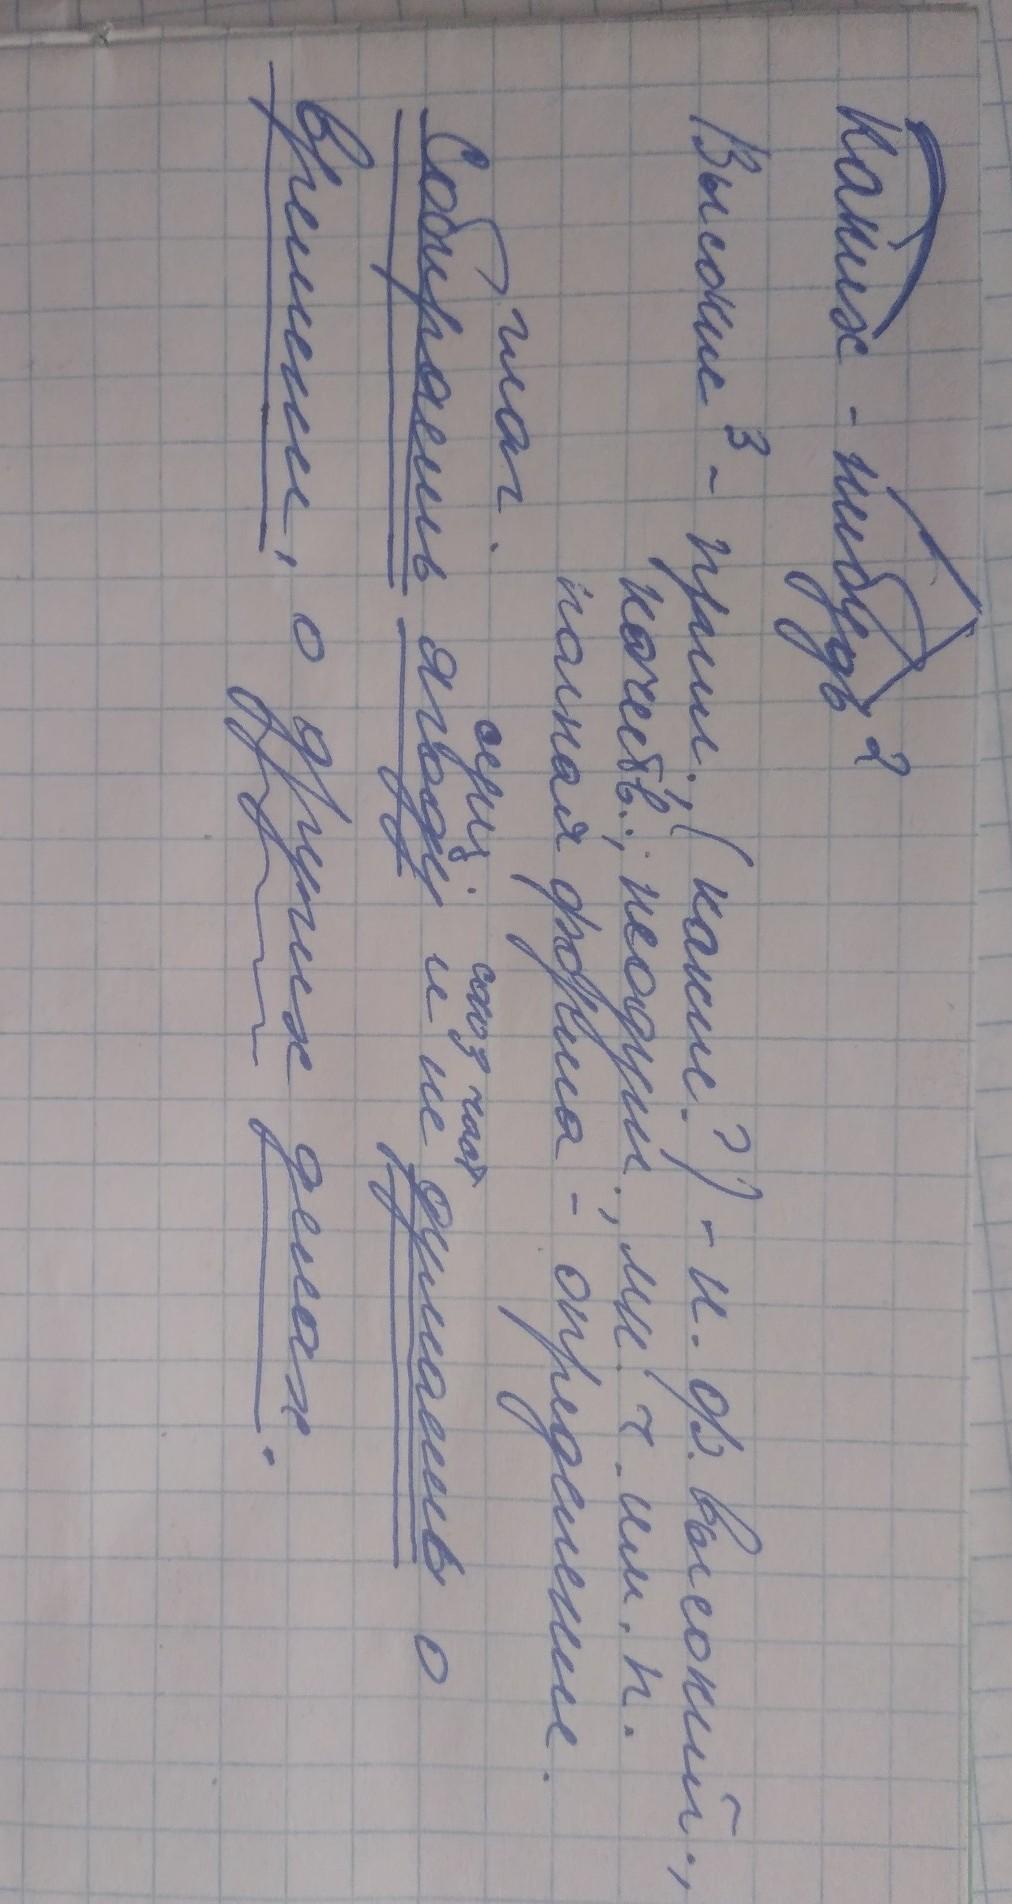 Каких-нибудь²
Высокие³ - прил., (какие?) - н. ф. высокий.,
качеств.; неодуш., мн. ч. им. п.
полная форма - определение.
глаг. сущ. союз част
Собираешь ягоду и не думаешь о
времени, о других делах.